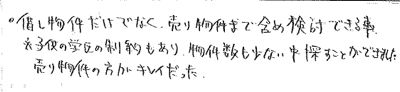 ○借し物件だけでなく、売り物件まで含め検討できる事、
★子供の学区の制約もあり、物件数も少ない中探すことができました
売り物件の方がキレイだった。